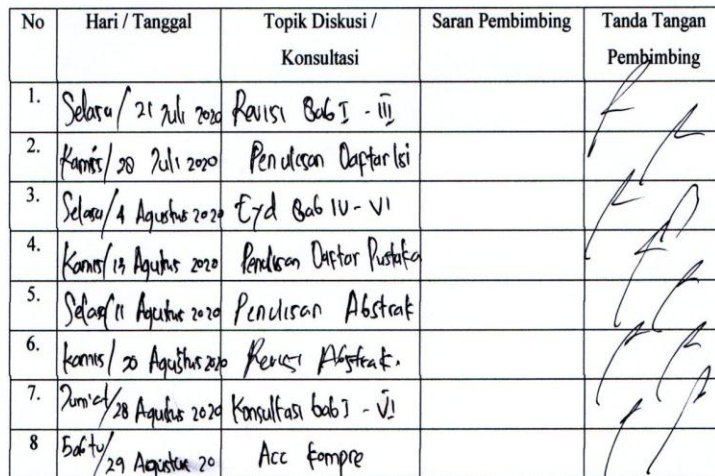 No Hari / Tanggal Topik Diskusi / Saran Pembimbing Tanda Tangan
Konsultasi Pembimbing
1. Selasa / 21 Juli 2020 Revisi Bab I - III
2. Kamis / 28 Juli 2020 Penulisan Daftar Isi
3. Selasa / 4 Agustus 2020 Eyd Bab IV - VI
4. Kamis / 13 Agustus 2020 Penulisan Daftar Pustaka
5. Selasa / 11 Agustus 2020 Penulisan Abstrak
6. Kamis / 20 Agustus 2020 Revisi Abstrak.
7. Jum'at / 28 Agustus 2020 Konsultasi bab I - VI
8 Sabtu / 29 Agustus 20 Acc Kompre